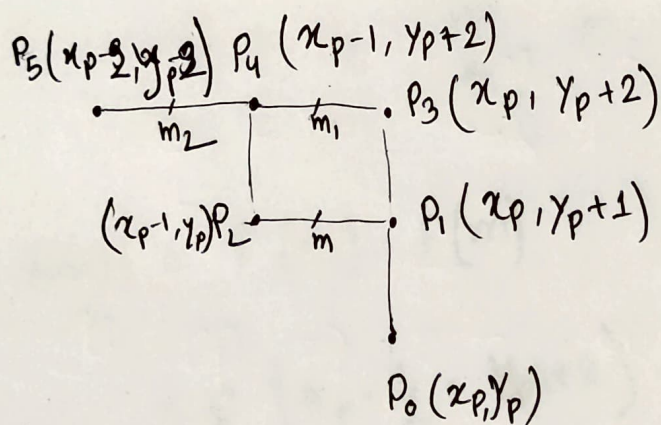 P5(xp-2, yp-2) P4 (xp-1, yp+2)
m2 m1 P3 (xp, yp+2)
(xp-1, yp)P2 m P1 (xp, yp+1)
P0 (xp, yp)